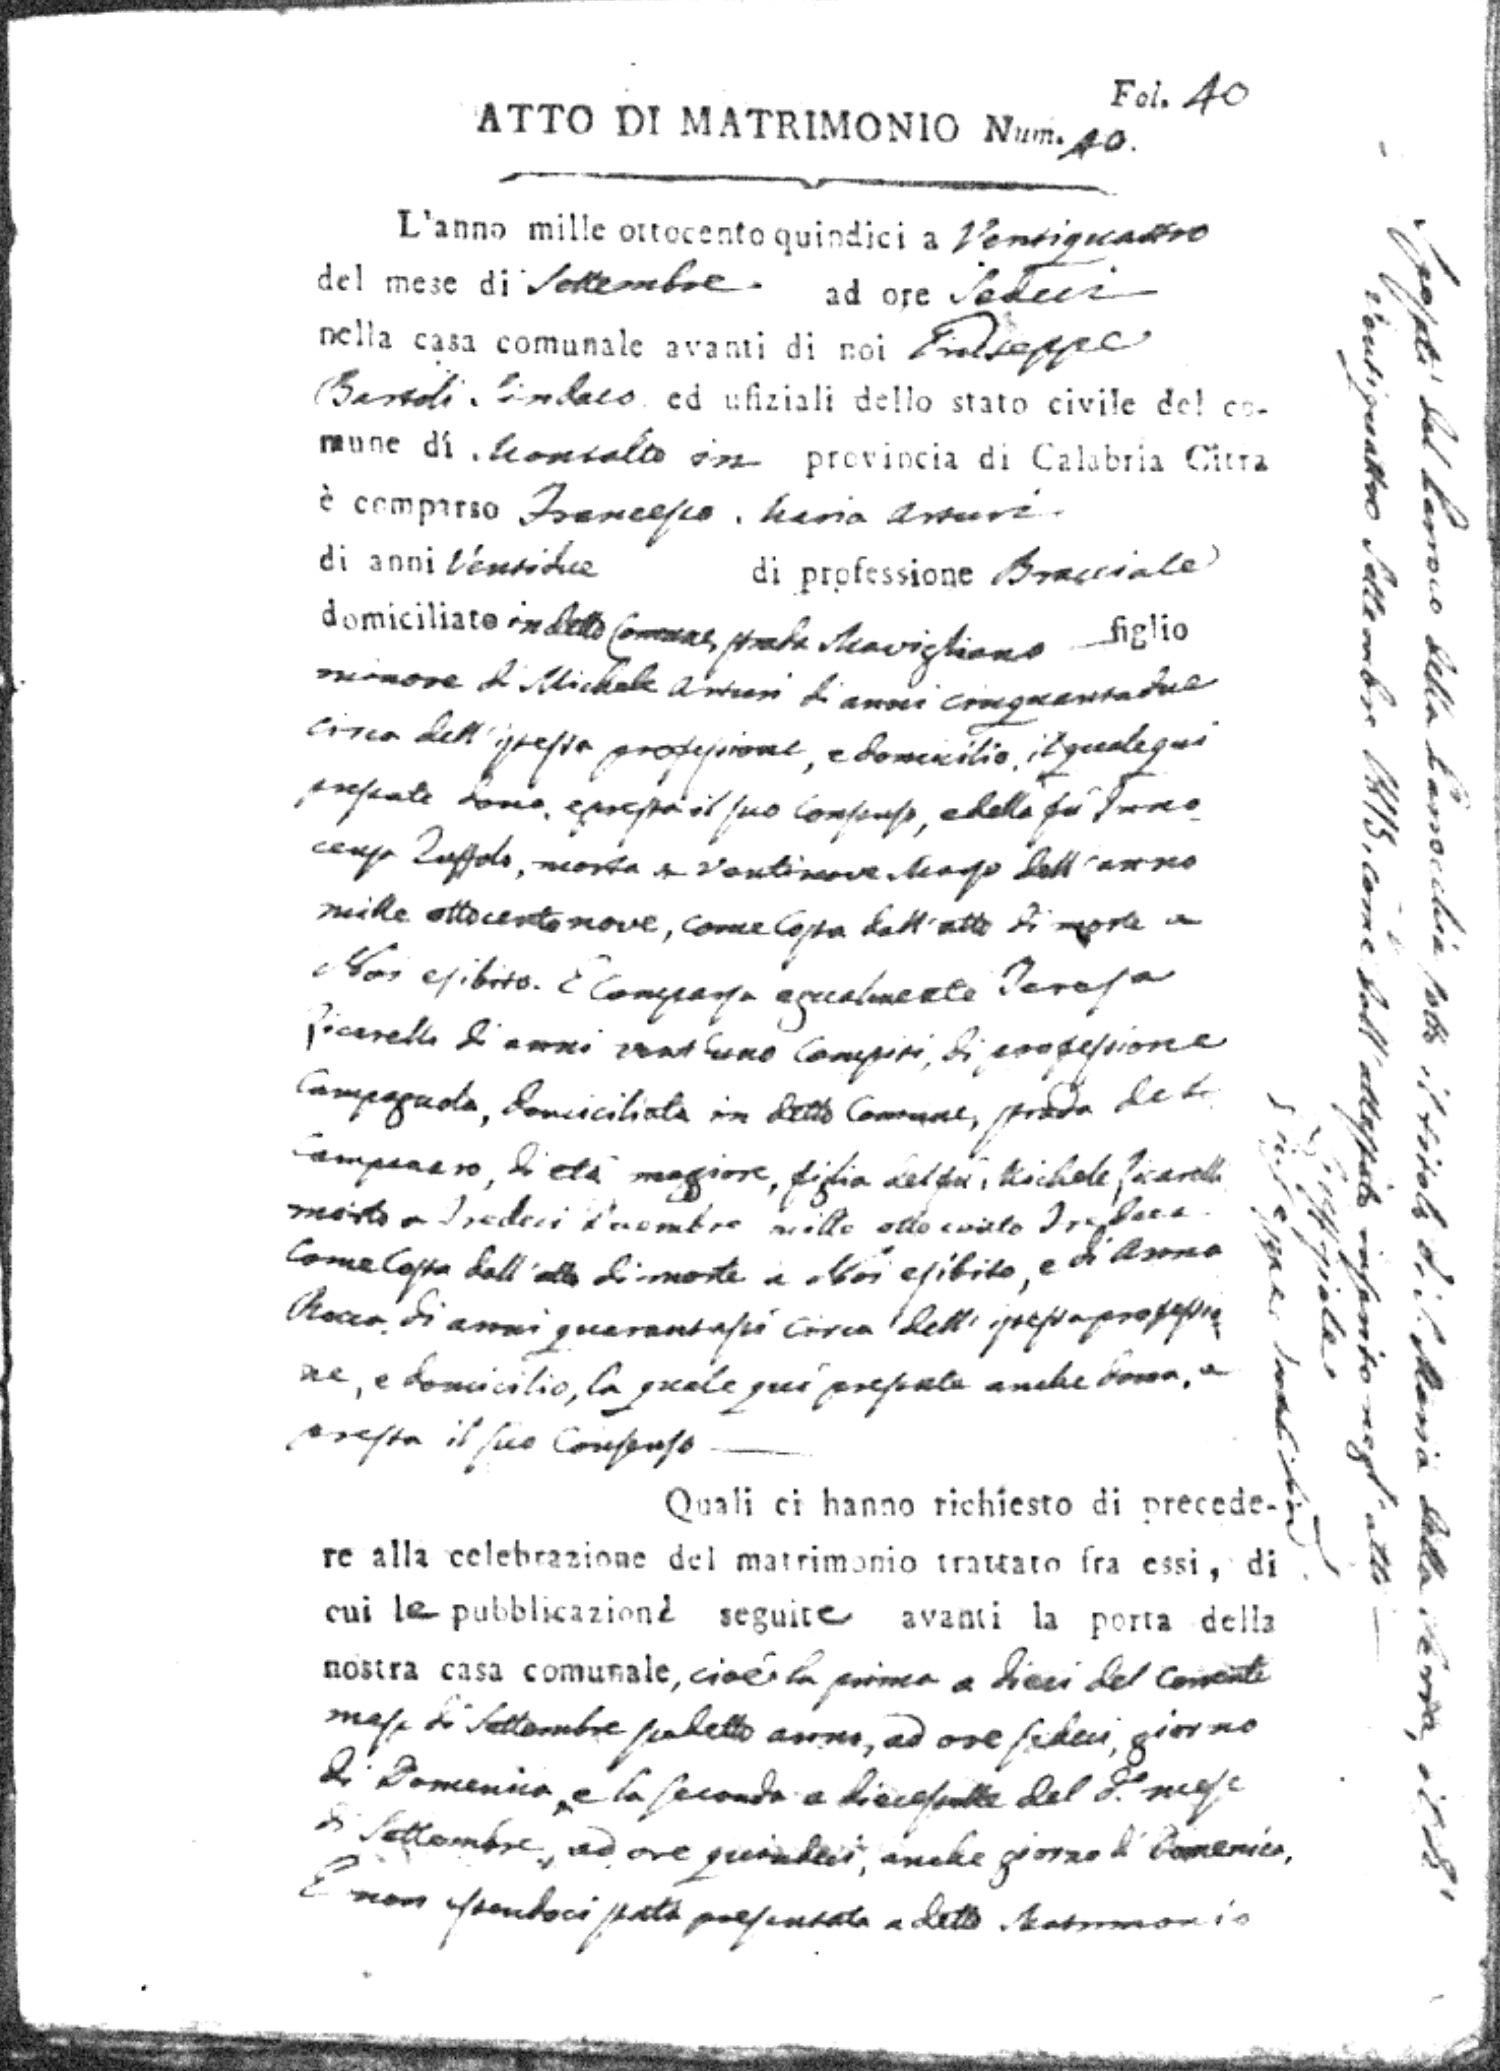 Fol. 40
ATTO DI MATRIMONIO Num. 40.
L'anno mille ottocento quindici a Ventiquattro
del mese di Settembre. ad ore Sedeci
nella casa comunale avanti di noi Giuseppe
Bartoli Sindaco ed ufiziali dello stato civile del co-
mune di Montalto in provincia di Calabria Citra
è comparso Francesco Maria Arturi
di anni Ventidue di professione Bracciale
domiciliato in detto Comune, strada Mavigliano figlio
minore di Michele Arturi di anni cinquantadue
circa dell'istessa professione, e domicilio, il quale qui
presente dona, e presta il suo Consenso, e della fù Inno
cenza Zuffolo, morta a ventinove Marzo dell'anno
mille ottocento nove, come Costa dall'atto di morte a
Noi esibito. È Comparsa egualmente Teresa
Picarelli di anni vent'uno Compiti, di professione
Campagnola, domiciliata in detto Comune, strada dello
Campanaro, di età maggiore, figlia del fù Michele Picarelli
morto a Tredeci mille otto cento
Come Costa dall'atto di morte a Noi esibito, e di Anna
Rocca di anni quarantasei circa dell'istessa professio
ne, e domicilio, la quale qui presente anche dona, e
presta il suo Consenso
Quali ci hanno richiesto di precede-
re alla celebrazione del matrimonio trattato fra essi, di
cui le pubblicazioni seguite avanti la porta della
nostra casa comunale, cioè la prima a dieci del Corrente
mese di Settembre sudetto anno, ad ore sedeci, giorno
di Domenica, e la seconda a diecesette del d.o mese
di Settembre, ad ore quindeci, anche giorno di Domenica,
E non essendoci stata presentata a detto Matrimonio
Sposati dal Parroco della Parrocchia sotto il titolo di S. Maria della Serra, il dì
Ventiquattro Settembre 1815, come dall'attestato inserito negl'atti
L'Uffiziale
Giuseppe